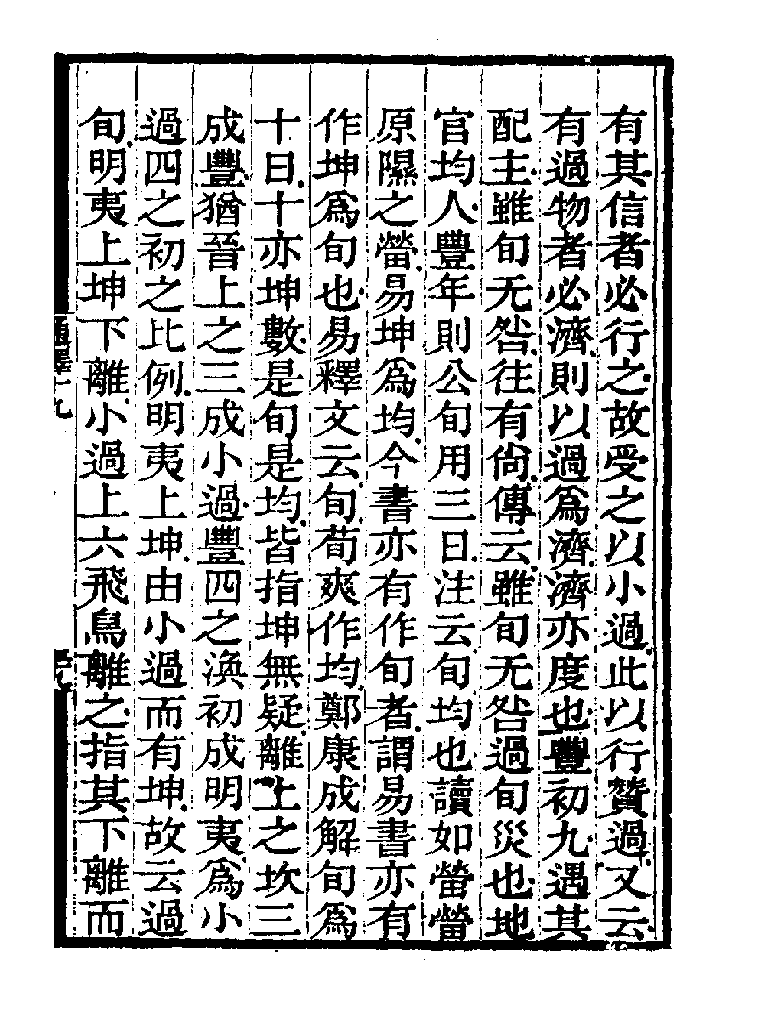 有其信者必行之故受之以小過此以行贊過又云
有過物者必濟則以過爲濟濟亦度也豐初九遇其
配主雖旬无咎往有尙傳云雖旬无咎過旬災也地
官均人豐年則公旬用三日注云旬均也讀如㽦㽦
原隰之㽦易坤爲均今書亦有作旬者謂易書亦有
作坤爲旬也易釋文云旬荀爽作均鄭康成解旬爲
十日十亦坤數是旬是均皆指坤無疑離上之坎三
成豐猶晉上之三成小過豐四之渙初成明夷爲小
過四之初之比例明夷上坤由小過而有坤故云過
旬明夷上坤下離小過上六飛鳥離之指其下離而
通釋十九